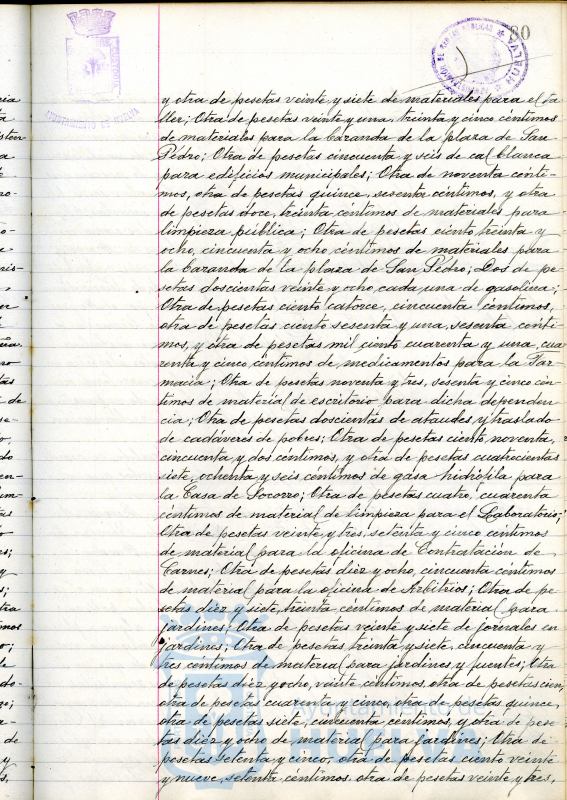 80
AYUNTAMIENTO DE HUELVA
y otra de pesetas veinte y siete de materiales para el ta
ller; Otra de pesetas veinte y una, treinta y cinco céntimos
de materiales para la baranda de la plaza de San
Pedro; Otra de pesetas cincuenta y seis de cal blanca
para edificios municipales; Otra de noventa cénti-
mos, otra de pesetas quince, sesenta céntimos, y otra
de pesetas doce, treinta céntimos de materiales para
limpieza pública; Otra de pesetas ciento treinta y
ocho, cincuenta y ocho céntimos de materiales para
la baranda de la plaza de San Pedro; Dos de pe
setas doscientas veinte y ocho, cada una de gasolina;
Otra de pesetas ciento catorce, cincuenta céntimos,
otra de pesetas ciento sesenta y una, sesenta cénti
mos, y otra de pesetas mil ciento cuarenta y una, cua
renta y cinco céntimos de medicamentos para la Far
macia; Otra de pesetas noventa y tres, sesenta y cinco cén
timos de material de escritorio para dicha dependen
cia; Otra de pesetas doscientas de ataudes y traslado
de cadáveres de pobres; Otra de pesetas ciento noventa,
cincuenta y dos céntimos, y otra de pesetas cuatrocientas
siete, ochenta y seis céntimos de gasa hidrófila para
la Casa de Socorro; Otra de pesetas cuatro, cuarenta
céntimos de material de limpieza para el Laboratorio;
Otra de pesetas veinte y tres, setenta y cinco céntimos
de material para la oficina de Contratación de
Carnes; Otra de pesetas diez y ocho, cincuenta céntimos
de material para la oficina de Arbitrios; Otra de pe
setas diez y siete, treinta céntimos de material para
jardines; Otra de pesetas veinte y siete de jornales en
jardines; Otra de pesetas treinta y siete, cincuenta y
tres céntimos de material para jardines y fuentes; Otra
de pesetas diez y ocho, veinte céntimos, otra de pesetas cien,
otra de pesetas cuarenta y cinco, otra de pesetas quince,
otra de pesetas siete, cincuenta céntimos, y otra de pese
tas diez y ocho de material para jardines; Otra de
pesetas setenta y cinco, otra de pesetas ciento veinte
y nueve, setenta céntimos, otra de pesetas veinte y tres,
Ayuntamiento de
HUELVA